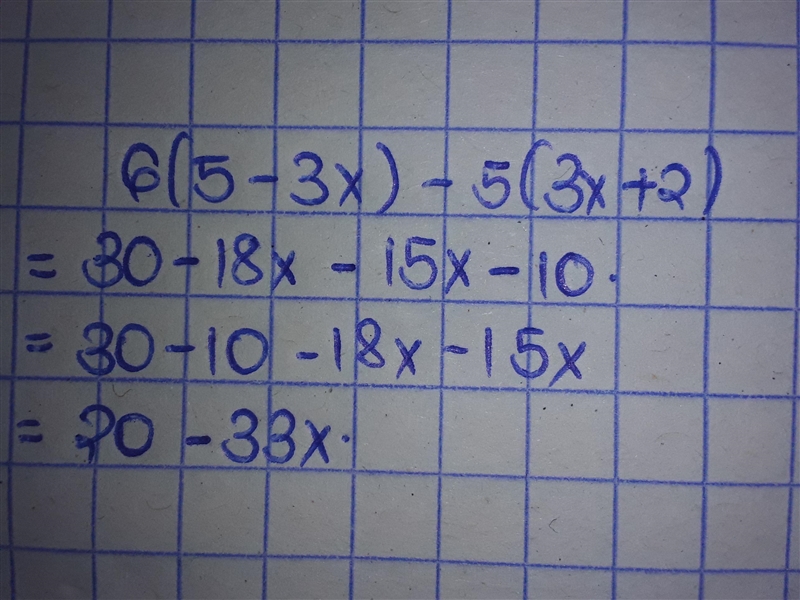 6(5-3x) - 5(3x+2)
= 30-18x - 15x-10.
= 30-10 -18x-15x
= 20 -33x.